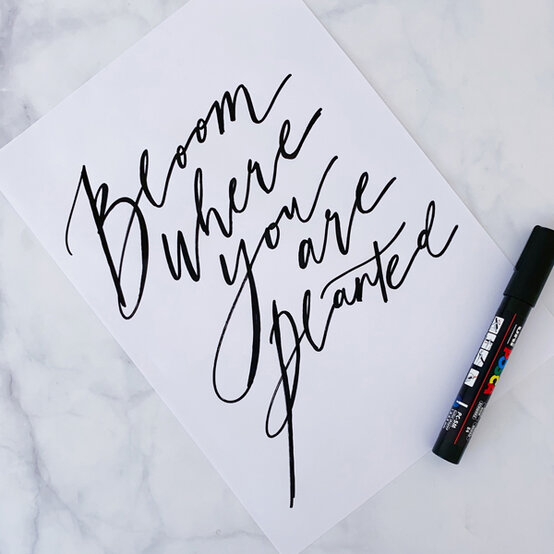 Bloom
where
you are
planted
uni
POSCA
PC-5M